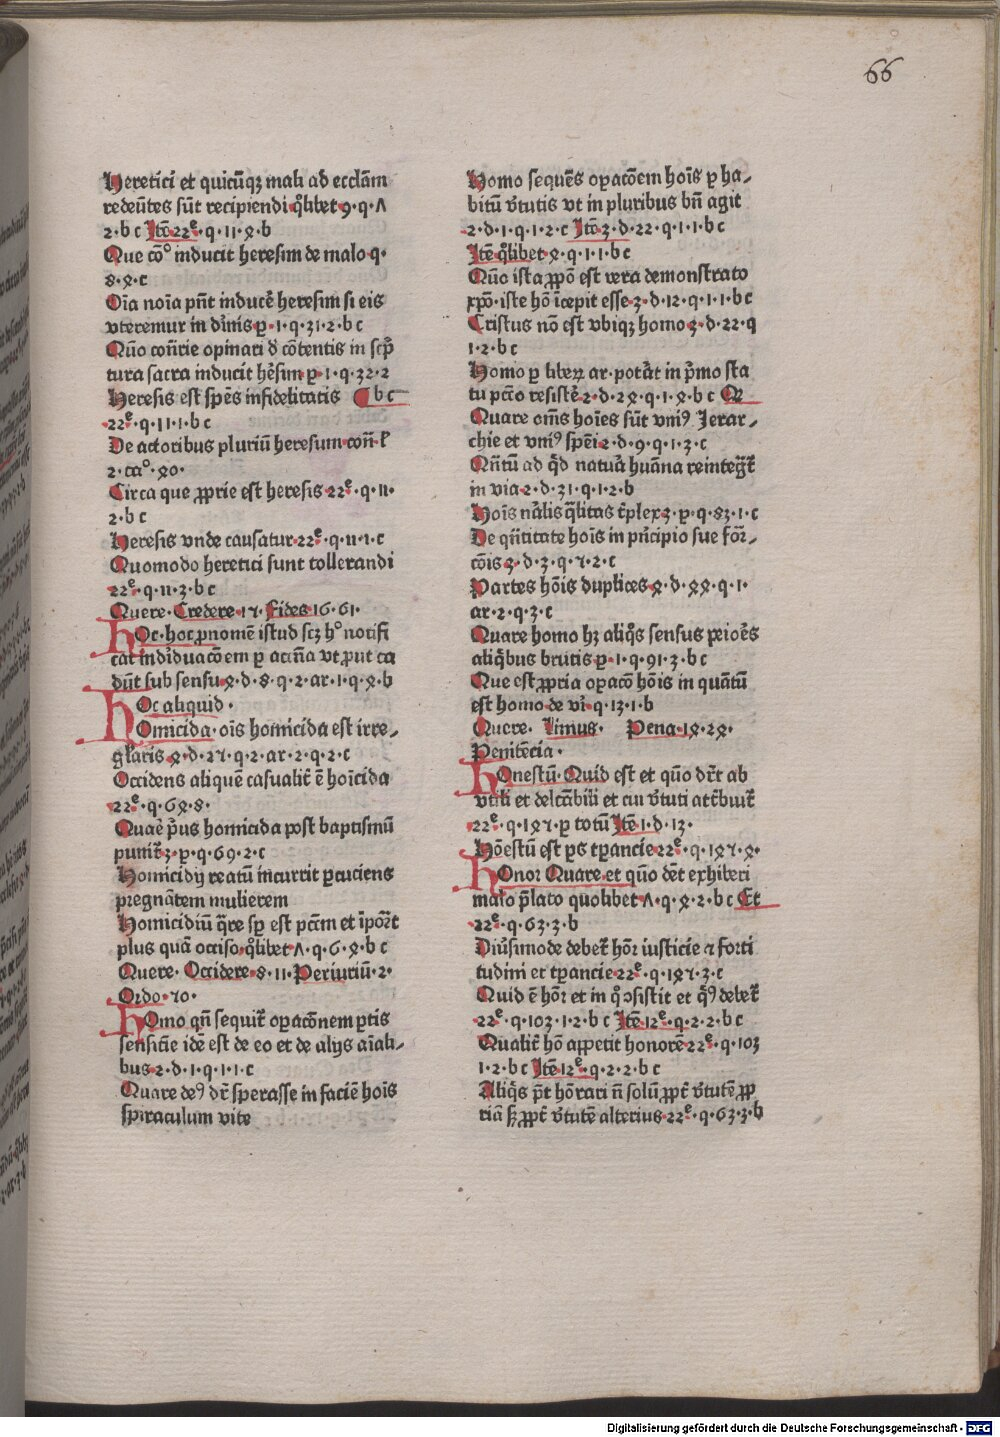 66
Heretici et quicūqȝ mali ad eccl̄am
redeūtes sūt recipiendi q̊libet·9·q·ʌ
2·b c Itē 22ͤ·q·11·ꝝ·b
Que cōͦ inducit heresim de malo·q·
8·ꝝ·c
Oīa noīa pn̄t inducē heresim si eis
vteremur in diīnis p̱·1·q·31·2·b c
Qūo con̄rie opinari d̄ cōtentis in scp̄
tura sacra inducit hēsim·p̱·1·q·32·2
Heresis est spēs infidelitatis ¶ b c
22ͤ·q·11·1·b c
De actoribus pluriū heresum·con̄·l̄
2·caͦ·ꝝ0·
Circa que ꝓprie est heresis 22ͤ·q·11·
2·b c
Heresis vnde causatur·22ͤ·q·11·1·c
Quomodo heretici sunt tollerandi
22ͤ·q·11·3·b c
Quere·Credere·17·Fides·16·61·
HOc·hoc ꝓnomē istud scȝ hͦ notifi
cat indiduacōem p̱ acin̄a vt ꝓut ca
dūt sub sensu·ꝝ·d·8·q·2·ar·1·q·ꝝ·b
HOc aliquid·
HOmicida·oīs homicida est irre⸗
gl̄aris ꝝ·d·27·q·2·ar·2·q·2·c
Occidens aliquē casualit̄ ē hoīcida
22ͤ·q·6ꝝ·8·
Quaē p̄us homicida post baptismū
punit̄·3·p̱·q·69·2·c
Homicidij reatū incurrit p̱cuciens
pregnātem mulierem
Homicidiū q̄re sp̱ est pctm̄ et īpor̄t
plus quā occiso·q̊libet·ʌ·q·6·ꝝ·b c
Quere·Occidere·8·11·Periuriū·2·
Ordo·70·
HOmo qn̄ sequit̄ oꝑacōnem p̱tis
sensitīe idē est de eo et de alijs aīali⸗
bus·2·d·1·q·1·1·c
Quare deꝰ dr̄ sperasse in faciē hoīs
spiraculum vite
Homo sequēs oꝑacōem hoīs p̱ ha⸗
bitū v̄tutis vt in pluribus bn̄ agit
2·d·1·q·1·2·c Itē 3·d·22·q·1·1·b c
Itē q̊libet·ꝝ·q·1·1·b c
Qūo ista ꝓpō est vera demonstrato
xp̄o·iste hō īcepit esse·3·d·12·q·1·1·b c
Cristus nō est vbiqȝ homo·3·d·22·q
1·2·b c
Homo p̱ liberꝝ ar·potāt in p̄mo sta
tu pctō resistē·2·d·2ꝝ·q·1·ꝝ·b c Et
Quare om̄s hoīes sūt vniꝰ Jerar⸗
chie et vniꝰ spēi·2·d·9·q·1·3·c
Qn̄tū ad q̄d natuā huāna reintegr̄t
in via·2·d·31·q·1·2·b
Hoīs nālis q̄litas t̄plex·3·p̱·q·83·1·c
De qn̄titate hoīs in pn̄cipio sue for̄⸗
cōis·3·d·3·q·7·2·c
Partes hōis duplices·ꝝ·d·ꝝꝝ·q·1·
ar·2·q·3·c
Quare homo hȝ aliq̊s sensus peiōēs
aliq̊bus brutis·p̱·1·q·91·3·b c
Que est ꝓpria oꝑacō hōis in quātū
est homo de vī·q·13·1·b
Quere· Limus· Pena·1ꝝ·2ꝝ·
Penitēcia·
HOnestū·Quid est et qūo dr̄t ab
vtili et delcābili et cui v̄tuti attb̄uit̄
22ͤ·q·1ꝝ7·p̱ totū Itē·1·d·13·
Hōestū est p̱s tp̱ancie·22ͤ·q·1ꝝ7·ꝝ·
HOnor Quare et qūo dēt exhiberi
malo p̄lato quolibet·ʌ·q·ꝝ·2·b c Et
22ͤ·q·63·3·b
Diūsimode debet̄ hōr iusticie ⁊ forti
tudini et tp̱ancie·22ͤ·q·1ꝝ7·3·c
Quid ē hōr et in q̊ ɔsistit et q̊ꝰ debet̄
22ͤ·q·103·1·2·b c Itē 12ͤ·q·2·2·b c
Qualit̄ hō appetit honorē·22ͤ·q·103
1·2·b c Itē 12ͤ·q·2·2·b c
Aliq̊s p̄t hōrari n̄ solū ꝓpt̄ v̄tutē ꝓp
riā sȝ ꝓpt̄ v̄tutē alterius·22ͤ·q·63·3·b
Digitalisierung gefördert durch die Deutsche Forschungsgemeinschaft - DFG